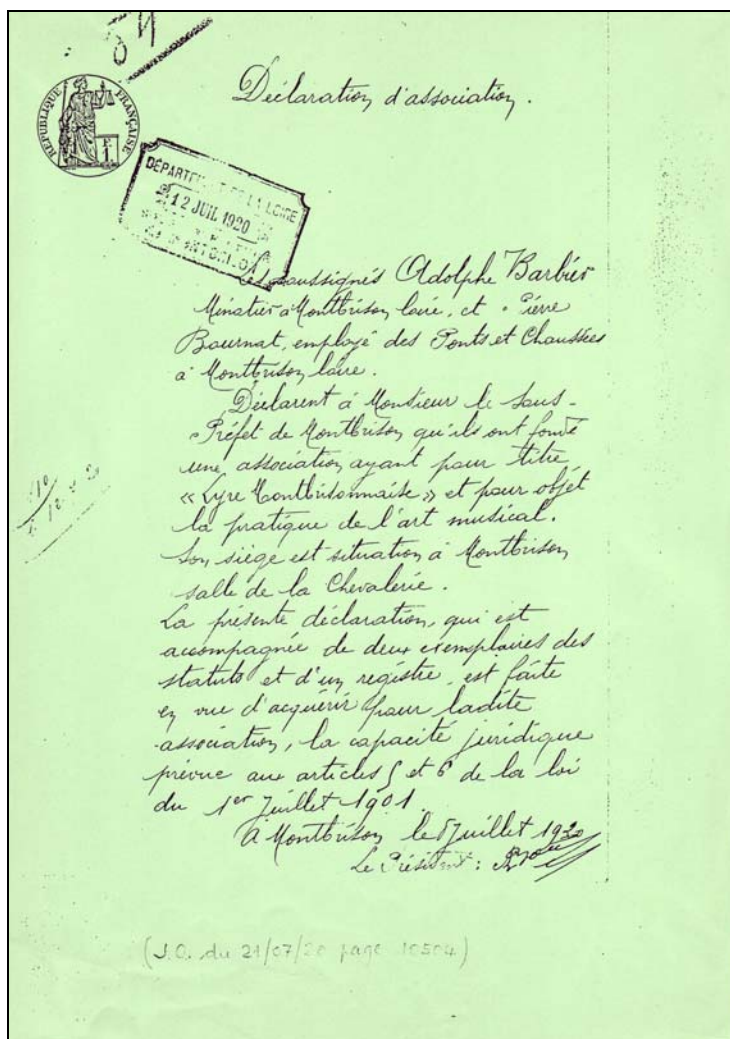 Déclaration d'association.
RÉPUBLIQUE FRANÇAISE
DÉPARTEMENT DE LA LOIRE
12 JUIL 1920
Les soussignés Adolphe Barbier
Minotier à Montbrison Loire, et Pierre
Bournat, employé des Ponts et Chaussées
à Montbrison Loire.
Déclarent à Monsieur le Sous-
Préfet de Montbrison qu'ils ont fondé
une association ayant pour titre
« Lyre Montbrisonnaise » et pour objet
la pratique de l'art musical.
Son siège est situation à Montbrison
salle de la Chevalerie.
La présente déclaration, qui est
accompagnée de deux exemplaires des
statuts et d'un registre, est faite
en vue d'acquérir pour ladite
association, la capacité juridique
prévue aux articles 5 et 6 de la loi
du 1er Juillet 1901.
A Montbrison le 8 Juillet 1920
Le Président :
(J.O. du 21/07/20 page 10504)